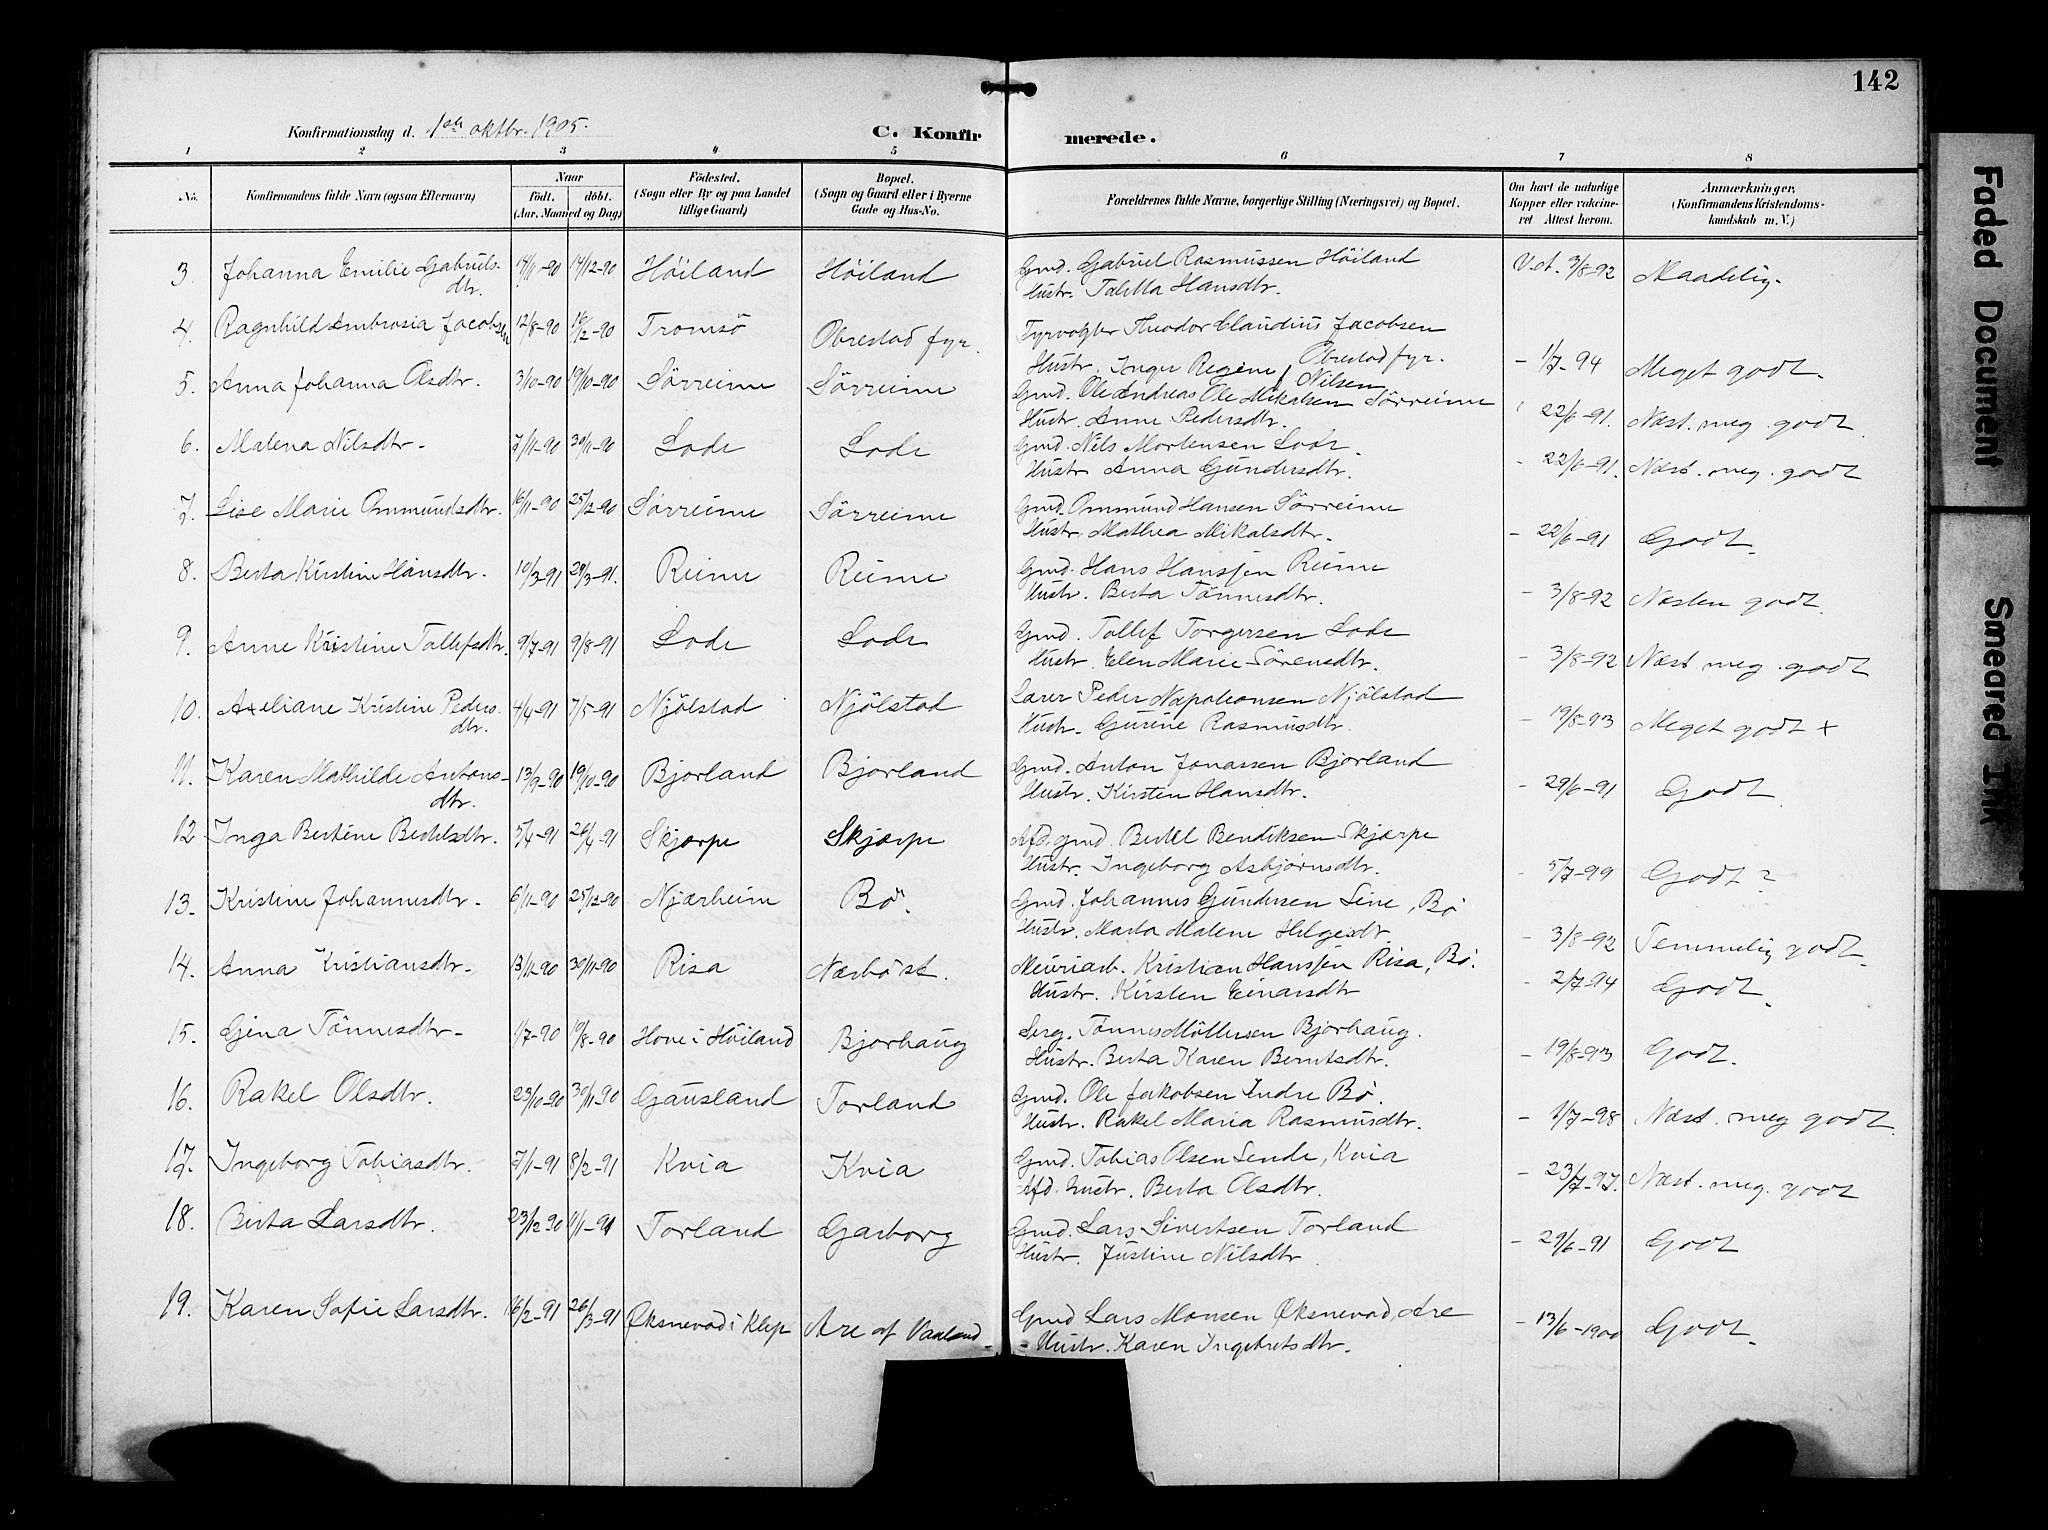 142
Konfirmationsdag d. 1ste oktbr. 1905.
C. Konfirmerede.
1 2 3 4 5 6 7 8
No. Konfirmandens fulde Navn (ogsaa Efternavn) Naar födt. döbt. (Aar, Maaned og Dag) Födested. (Sogn eller By og paa Landet tillige Gaard) Bopæl. (Sogn og Gaard eller i Byerne Gade og Hus-No. Forældrenes fulde Navne, borgerlige Stilling (Næringsvei) og Bopæl. Om havt de naturlige Kopper eller vakcineret. Attest herom. Anmærkninger. (Konfirmandens Kristendomskundskab m. V.)
3. Johanna Emilie Gabriels- 14/11-90 14/12-90 Höiland Höiland Gmd. Gabriel Rasmussen Höiland V.at. 3/8-92 Maadelig.
dtr. Hustr. Taletta Hansdtr.
4. Ragnhild Ambrosia Jacobsen 12/8-90 Tromsö Obrestad fyr. Fyrvogter Theodor Claudius Jacobsen
Obrestad fyr.
Hustr. Inger Regine Nilsen - 1/7-94 Meget godt.
5. Anna Johanna Olsdtr. 3/10-90 19/10-90 Sörreime Sörreime Gmd. Ole Andreas Ole Mikalsen Sörreime
Hustr. Anne Pedersdtr. 22/6-91. Næst. meg. godt.
6. Malena Nilsdtr. 7/11-90 30/11-90 Lode Lode Gmd. Nils Mortensen Lode.
Hustr. Anna Gundersdtr. - 22/6-91. Næst. meg. godt
7. Lise Marie Ommundsdtr. 16/11-90 25/12-90 Sörreime Sörreime Gmd. Ommund Hansen Sörreime
Hustr. Mathea Mikalsdtr. - 22/6-91 Godt.
8. Berta Kirstine Hansdtr. 10/3-91 29/3-91. Reime Reime Gmd. Hans Hanssen Reime
Hustr. Berta Tönnesdtr. - 3/8-92 Næsten godt.
9. Anne Kristine Tollefsdtr. 9/7-91 9/8-91 Lode Lode Gmd. Tollef Torgersen Lode
Hustr. Elen Marie Sörensdtr. - 3/8-92 Næst. meg. godt
10. Axeliane Kristine Peders- 4/4-91 7/5-91 Njölstad Njölstad Lærer Peder Napoleonsen Njölstad
dtr. Hustr. Gurine Rasmusdtr. - 19/8-93 Meget godt +
11. Karen Mathilde Antons- 13/9-90 19/10-90 Bjorland Bjorland Gmd. Anton Jonassen Bjorland
dtr. Hustr. Kirsten Hansdtr. - 29/6-91 Godt.
12 Inga Bertine Bertelsdtr. 5/4-91 26/4-91 Skjærpe Skjærpe Afd. gmd. Bertel Bendiksen Skjærpe
Hustr. Ingeborg Asbjörnsdtr. - 5/7-99 Godt?
13. Kristine Johannesdtr. 6/11-90 25/12-90 Njærheim Bö. Gmd. Johannes Gundersen Line, Bö
Hustr. Marta Malene Helgesdtr. - 3/8-92 Temmelig godt.
14. Anna Kristiansdtr. 13/11-90 30/11-90 Risa Nærböst. Meieriarb. Kristian Hanssen Risa, Bö.
Hustr. Kirsten Einarsdtr - 2/7-94 Godt.
15. Gina Tönnesdtr. 1/7-90 19/8-90 Hove i Höiland Bjorhaug Serg. Tönnes Möllersen Bjorhaug.
Hustr. Berta Karen Berntsdtr. - 19/8-93 Godt.
16. Rakel Olsdtr. 23/10-90 30/11-90 Gausland Torland Gmd. Ole Jakobsen Indre Bö.
Hustr. Rakel Maria Rasmusdtr. - 1/7-98 Næst. meg godt.
17. Ingeborg Tobiasdtr. 7/1-91 8/2-91 Kvia Kvia Gmd. Tobias Olsen Lende, Kvia
Afd. Hustr. Berta Olsdtr. - 23/7-97. Næst. meg. godt
18. Berta Larsdtr. 23/12-90 11/1-91 Torland Garborg Gmd. Lars Sivertsen Torland
Hustr. Justine Nilsdtr - 29/6-91 Godt
19. Karen Sofie Larsdtr. 16/2-91 26/3-91 Øksnevad i Klep Are af Vaaland Gmd Lars Monsen Øksnevad, Are
Hustr. Karen Ingebretsdtr. - 13/6-1900 Godt.
Faded Document
Smeared Ink